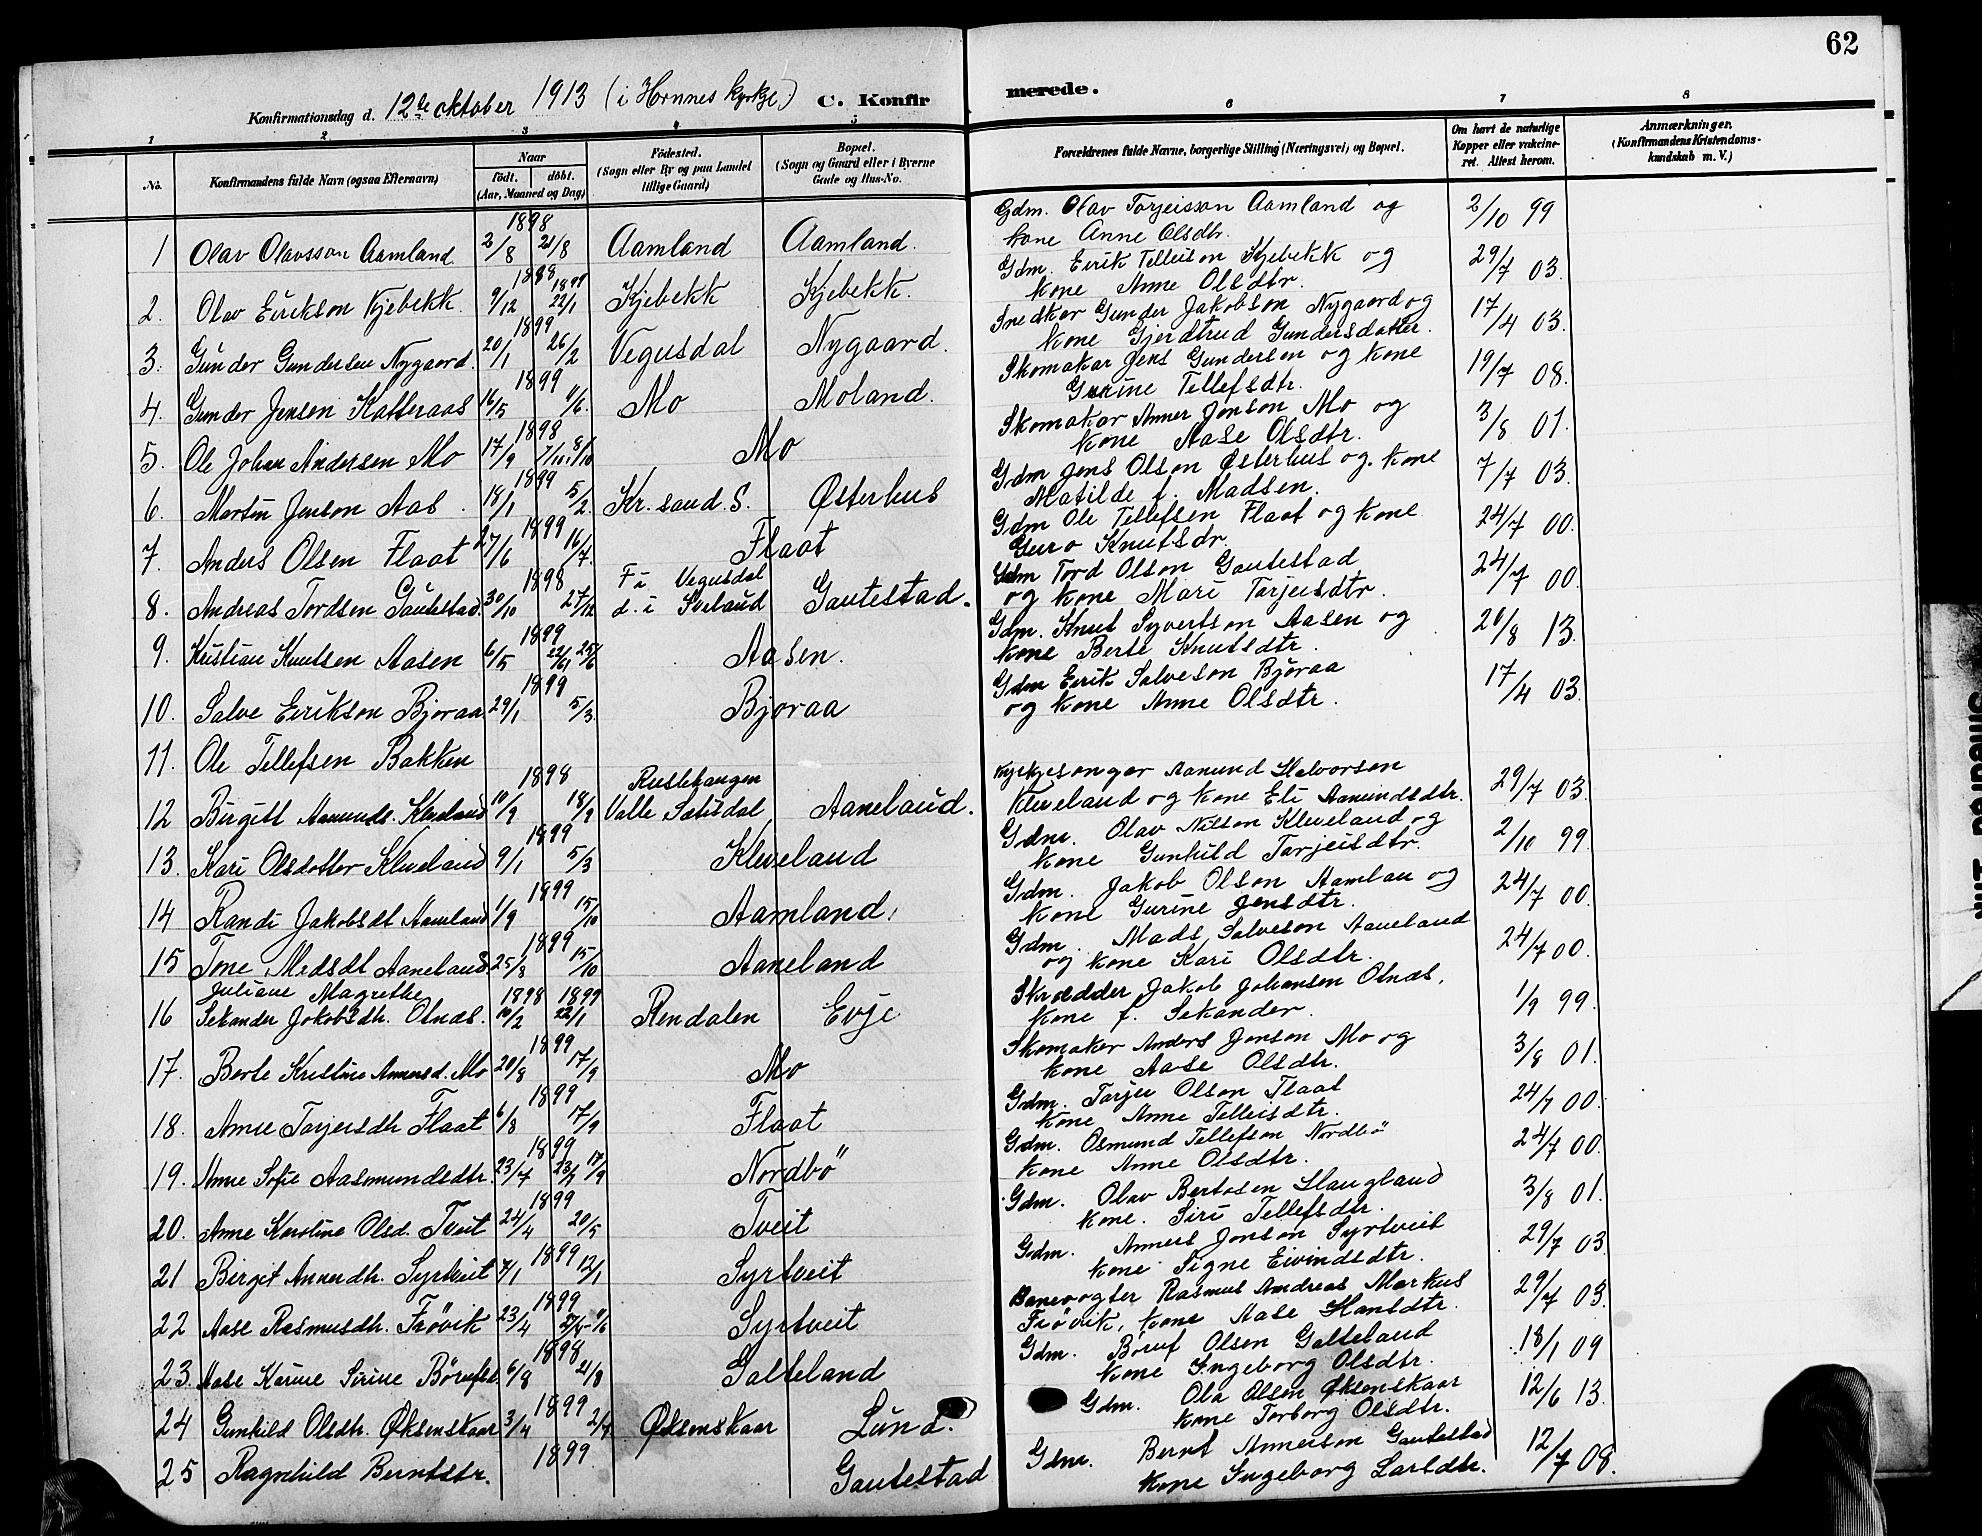 62
Konfirmationsdag d. 12te oktober 1913 (i Hornnes kyrkje.) C. Konfirmerede.
1 2 3 4 5 6 7 8
No. Konfirmandens fulde Navn (ogsaa Efternavn) Naar födt. döbt. (Aar, Maaned og Dag) Födested. (Sogn eller By og paa Landet tillige Gaard) Bopæl. (Sogn og Gaard eller i Byerne Gade og Hus-No. Forældrenes fulde Navne, borgerlige Stilling (Næringsvei) og Bopæl. Om havt de naturlige Kopper eller vaccineret. Attest herom. Anmærkninger. (Konfirmandens Kristendomskundskab m. V.)
1 Olav Olavsson Aamland 1898 2/8 21/8 Aamland Aamland. Gdm. Olav Torjeisson Aamland og kone Anne Olsdtr. 2/10 99
2. Olav Eirikson Kjebekk 1898 9/12 1899 22/1 Kjebekk Kjebekk. Gdm. Eirik Telleison Kjebekk og kone Anne Olsdtr. 29/7 03.
3. Gunder Gundersen Nygaard. 1899 20/1 26/2 Vegusdal Nygaard. Snedker Gunder Jakobson Nygaard og kone Gjerdtrud Gundersdatter. 17/4 03.
4. Gunder Jensen Katteraas 1899 16/5 11/6. Mo Moland. Skomakar Jens Gundersen og kone Gurine Tellefsdtr. 19/7 08.
5. Ole Johan Andersen Mo 1898 17/9 7/10. 9/10 Mo Skomakar Anner Jonson Mo og kone Aase Olsdtr. 3/8 01.
6. Martin Jenson Aas 1899 18/1 5/2. Kr.sand S. Østerhus Gdm Jens Olson Østerhus og kone Matilde f. Madsen. 7/7 03.
7. Anders Olsen Flaat 1899 27/6 16/7. Flaat Gdm Ole Tellefsen Flaat og kone Guro Knutsdr. 24/7 00.
8. Andreas Tordsen Gautestad. 1898 30/10 27/12 F. i Vegusdal d. i Sveland Gautestad. Gdm Tord Olson Gautestad og kone Mari Torjeisdtr. 24/7 00.
9. Kristian Knutsen Aasen 1899 6/5 22/6 25/6 Aasen. Gdm. Knut Syvertson Aasen og kone Berte Knutsdtr. 26/8 13.
10. Salve Eirikson Bjoraa 1899 29/1 5/3. Bjoraa Gdm Eirik Salveson Björaa og kone Anne Olsdtr. 17/4 03.
11. Ole Tellefsen Bakken
12 Birgitt Aamunds. Kleveland 1898 10/9 18/9 Rustehaugen Valle Sætisdal Aaneland. Kyrkjesongar Aamund Halvorson Kleveland og kone Eli Aamundsdtr. 29/7 03.
13. Kari Olsdotter Kleveland 1899 9/1 5/3 Kleveland Gdm. Olav Nilson Kleveland og kone Gunhild Torjeisdtr. 2/10 99.
14 Randi Jakobsdt Aamland 1899 1/9 15/10 Aamland. Gdm. Jakob Olson Aamlan og kone Gurine Jensdtr. 24/7 00.
15 Tone Madsdt Aaneland 1899 25/8 15/10 Aaneland Gdm. Mads Salveson Aaneland og kone Kari Olsdtr. 24/7 00.
16 Juliane Magrethe Sekander Jakobsdtr. Olnæs. 1898 10/2 1899 22/1 Rendalen Evje Skrædder Jakob Johansen Olnæs, kone f. Sekander. 1/9 99.
17. Berte Kristine Annersd. Mo 1899 20/8 17/9 Mo Skomaker Anders Jonson Mo og kone Aase Olsdtr. 3/8 01.
18. Anne Torjeisdtr Flaat 1899 6/8 17/9 Flaat Gdm. Torjei Olson Flaat kone Anne Telleisdtr. 24/7 00.
19. Anne Sofie Aasmundsdtr. 1899 23/7 23/7 17/9 Nordbö Gdm. Osmund Tellefson Nordbö kone Anne Olsdtr. 24/7 00.
20. Anne Karoline Olsd. Tveit 1899 24/4 20/5 Tveit Gdm. Olav Bertosen Haugland kone. Siri Tellefsdtr. 3/8 01.
21 Birgit Annersdtr. Syrtveit 1899 7/1 12/1 Syrtveit Gdm. Anners Jonson Syrtveit kone Signe Eivindsdtr. 29/7 03
22 Aase Rasmusdtr. Frövik 1899 23/4 Syrtveit Banevogter Rasmus Andreas Markus Frövik, kone Aase Hansdtr. 29/7 03.
23. Aase Karine Sirine Börufsd. 1898 6/8 21/8 Galteland Gdm. Böruf Olsen Galteland kone Ingeborg Olsdtr. 18/1 09
24 Gunhild Olsdtr. Øksenskaar 1899 3/4 2/7 Øksenskaar Lund. Gdm. Ola Olsen Øksenskaar kone Torborg Olsdtr. 12/6 13.
25 Ragnhild Berntstr. 1899. Gautestad Gdm. Bernt Annerson Gautestad kone Ingeborg Larsdtr. 12/7 08.